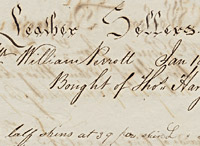 Leather Sellers
William Perrott Jan
Bought of Thos Har
half skins at 39 per skin £